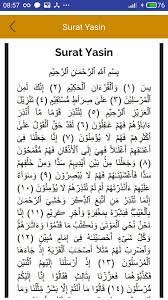 08:57 76
Surat Yasin
Surat Yasin
بِسْمِ اللَّهِ الرَّحْمَنِ الرَّحِيْمِ
يس (١) وَالْقُرْآنِ الْحَكِيْمِ (٢) إِنَّكَ لَمِنَ
الْمُرْسَلِيْنَ (٣) عَلَى صِرَاطٍ مُسْتَقِيْمٍ (٤) تَنْزِيْلَ
الْعَزِيْزِ الرَّحِيْمِ (٥) لِتُنْذِرَ قَوْمًا مَا أُنْذِرَ
ءَابَاؤُهُمْ فَهُمْ غَافِلُوْنَ (٦) لَقَدْ حَقَّ الْقَوْلُ عَلَى
أَكْثَرِهِمْ فَهُمْ لاَ يُؤْمِنُوْنَ (٧) إِنَّا جَعَلْنَا فِي
أَعْنَاقِهِمْ أَغْلاَلاً فَهِيَ إِلَى الْأَذْقَانِ فَهُمْ مُقْمَحُوْنَ
(٨) وَجَعَلْنَا مِنْ بَيْنِ أَيْدِيْهِمْ سَدًّا وَمِنْ خَلْفِهِمْ
سَدًّا فَأَغْشَيْنَاهُمْ فَهُمْ لاَ يُبْصِرُوْنَ (٩) وَسَوَاءٌ
عَلَيْهِمْ ءَأَنْذَرْتَهُمْ أَمْ لَمْ تُنْذِرْهُمْ لاَ يُؤْمِنُوْنَ (١٠)
إِنَّمَا تُنْذِرُ مَنِ اتَّبَعَ الذِّكْرَ وَخَشِيَ الرَّحْمَنَ
بِالْغَيْبِ فَبَشِّرْهُ بِمَغْفِرَةٍ وَأَجْرٍ كَرِيْمٍ (١١)
إِنَّا نَحْنُ نُحْيِي الْمَوْتَى وَنَكْتُبُ مَا قَدَّمُوا وَءَاثَارَهُمْ
وَكُلَّ شَيْءٍ أَحْصَيْنَاهُ فِي إِمَامٍ مُبِيْنٍ (١٢)
وَاضْرِبْ لَهُمْ مَثَلاً أَصْحَابَ الْقَرْيَةِ إِذْ جَاءَهَا
الْمُرْسَلُوْنَ (١٣) إِذْ أَرْسَلْنَا إِلَيْهِمُ اثْنَيْنِ
فَكَذَّبُوْهُمَا فَعَزَّزْنَا بِثَالِثٍ فَقَالُوا إِنَّا